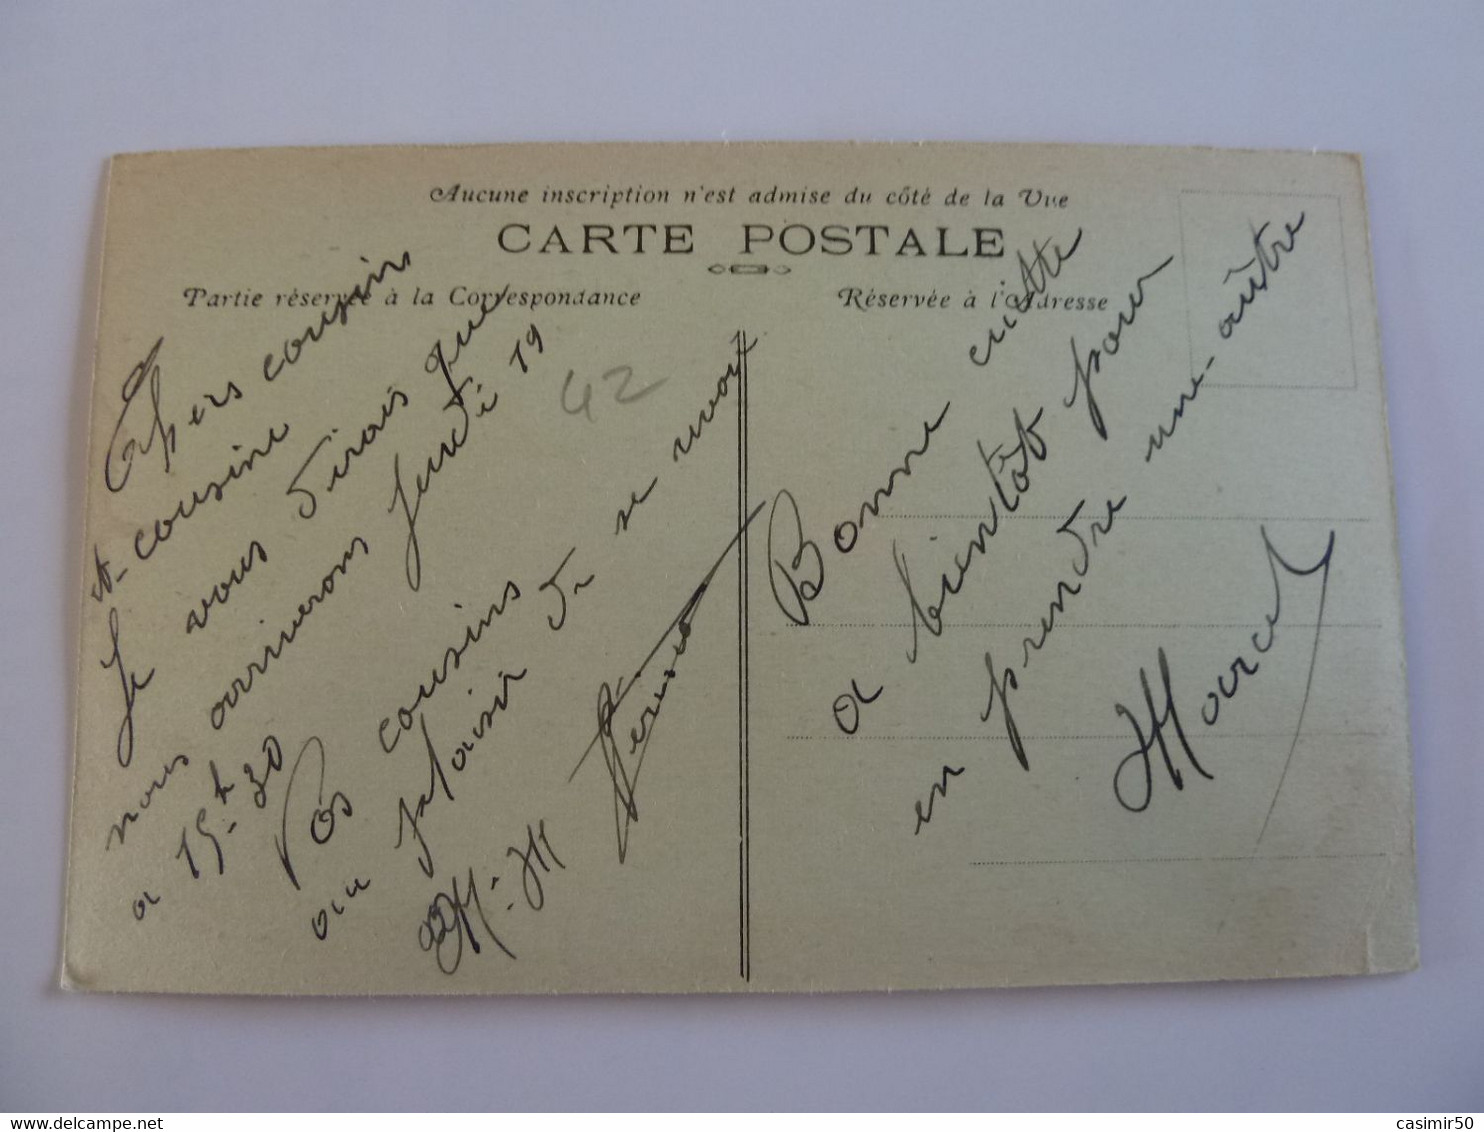 Aucune inscription n'est admise du côté de la Vue
CARTE POSTALE
Partie réservée à la Correspondance
Réservée à l'Adresse
42
Chers cousin
et cousine
Je vous dirais que
nous arriverons Jeudi 19
a 15h 30
Vos cousins
au plaisir de se revoir
M. M
Bonne cuitte
a bientôt pour
en prendre une-aûtre
Marcel
casimir50